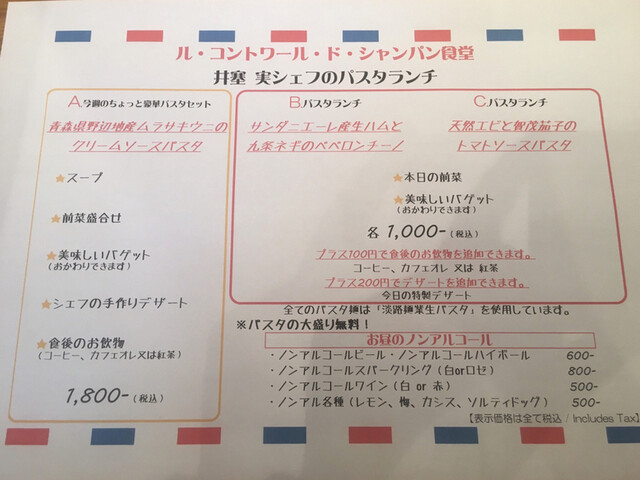 ル・コントワール・ド・シャンパン食堂
井塞 実シェフのパスタランチ
A.今週のちょっと豪華パスタセット
青森県野辺地産ムラサキウニの
クリームソースパスタ
★スープ
★前菜盛合せ
★美味しいバゲット
(おかわりできます)
★シェフの手作りデザート
★食後のお飲物
(コーヒー、カフェオレ又は紅茶)
1,800-(税込)
B.パスタランチ
サンダニエーレ産生ハムと
九条ネギのペペロンチーノ
C.パスタランチ
天然エビと賀茂茄子の
トマトソースパスタ
★本日の前菜
★美味しいバゲット
(おかわりできます)
各 1,000-(税込)
プラス100円で食後のお飲物を追加できます。
コーヒー、カフェオレ 又は 紅茶
プラス200円でデザートを追加できます。
今日の特製デザート
全てのパスタ麺は「淡路麺業生パスタ」を使用しています。
※パスタの大盛り無料！
お昼のノンアルコール
・ノンアルコールビール・ノンアルコールハイボール 600-
・ノンアルコールスパークリング(白orロゼ) 800-
・ノンアルコールワイン(白 or 赤) 500-
・ノンアル各種(レモン、梅、カシス、ソルティドッグ) 500-
【表示価格は全て税込 / Includes Tax】